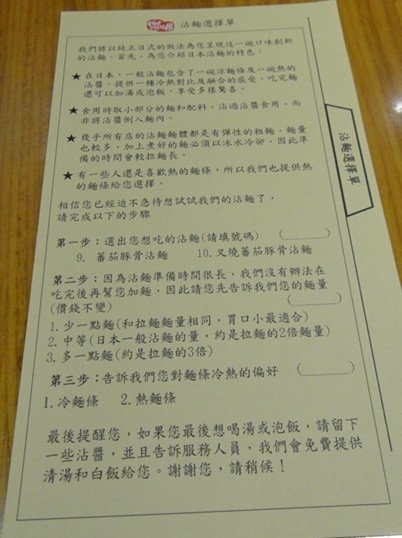 沾麵選擇單
我們將以純正日式的做法為您呈現這一碗口味創新
的沾麵。首先，為您介紹日本沾麵的特色：
★ 在日本，一般沾麵包含了一碗涼麵條及一碗熱的
沾醬，提供一種冷熱對比及融合的感受。吃完麵
還可以加湯或泡飯，享受多樣驚喜。
★ 食用時取小部分的麵和配料，沾過沾醬食用，而
非將沾醬倒入麵內。
★ 幾乎所有店的沾麵麵體都是有彈性的粗麵，麵量
也較多，加上煮好的麵必須以冰水冷卻，因此準
備的時間會較拉麵長。
★ 有一些人還是喜歡熱的麵條，所以我們也提供熱
的麵條給您選擇。
相信您已經迫不急待想試試我們的沾麵了，
請完成以下的步驟
第一步：選出您想吃的沾麵(請填號碼)
9. 蕃茄豚骨沾麵 10. 叉燒蕃茄豚骨沾麵
第二步：因為沾麵準備時間很長，我們沒有辦法在
吃完後再幫您加麵，因此請您先告訴我們您的麵量
(價錢不變)
1. 少一點麵(和拉麵麵量相同，胃口小最適合)
2. 中等(日本一般沾麵的量，約是拉麵的2倍麵量)
3. 多一點麵(約是拉麵的3倍)
第三步：告訴我們您對麵條冷熱的偏好
1. 冷麵條 2. 熱麵條
最後提醒您，如果您最後想喝湯或泡飯，請留下
一些沾醬，並且告訴服務人員，我們會免費提供
清湯和白飯給您。謝謝您，請稍候！
沾麵選擇單